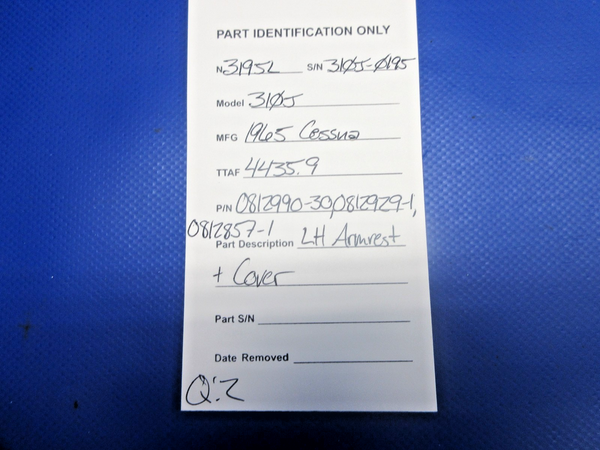 PART IDENTIFICATION ONLY
N 3195L S/N 310J-0195
Model 310J
MFG 1965 Cessna
TTAF 4435.9
P/N 0812990-30, 0812929-1,
0812857-1
Part Description LH Armrest
+ Cover
Part S/N
Date Removed
Q:2